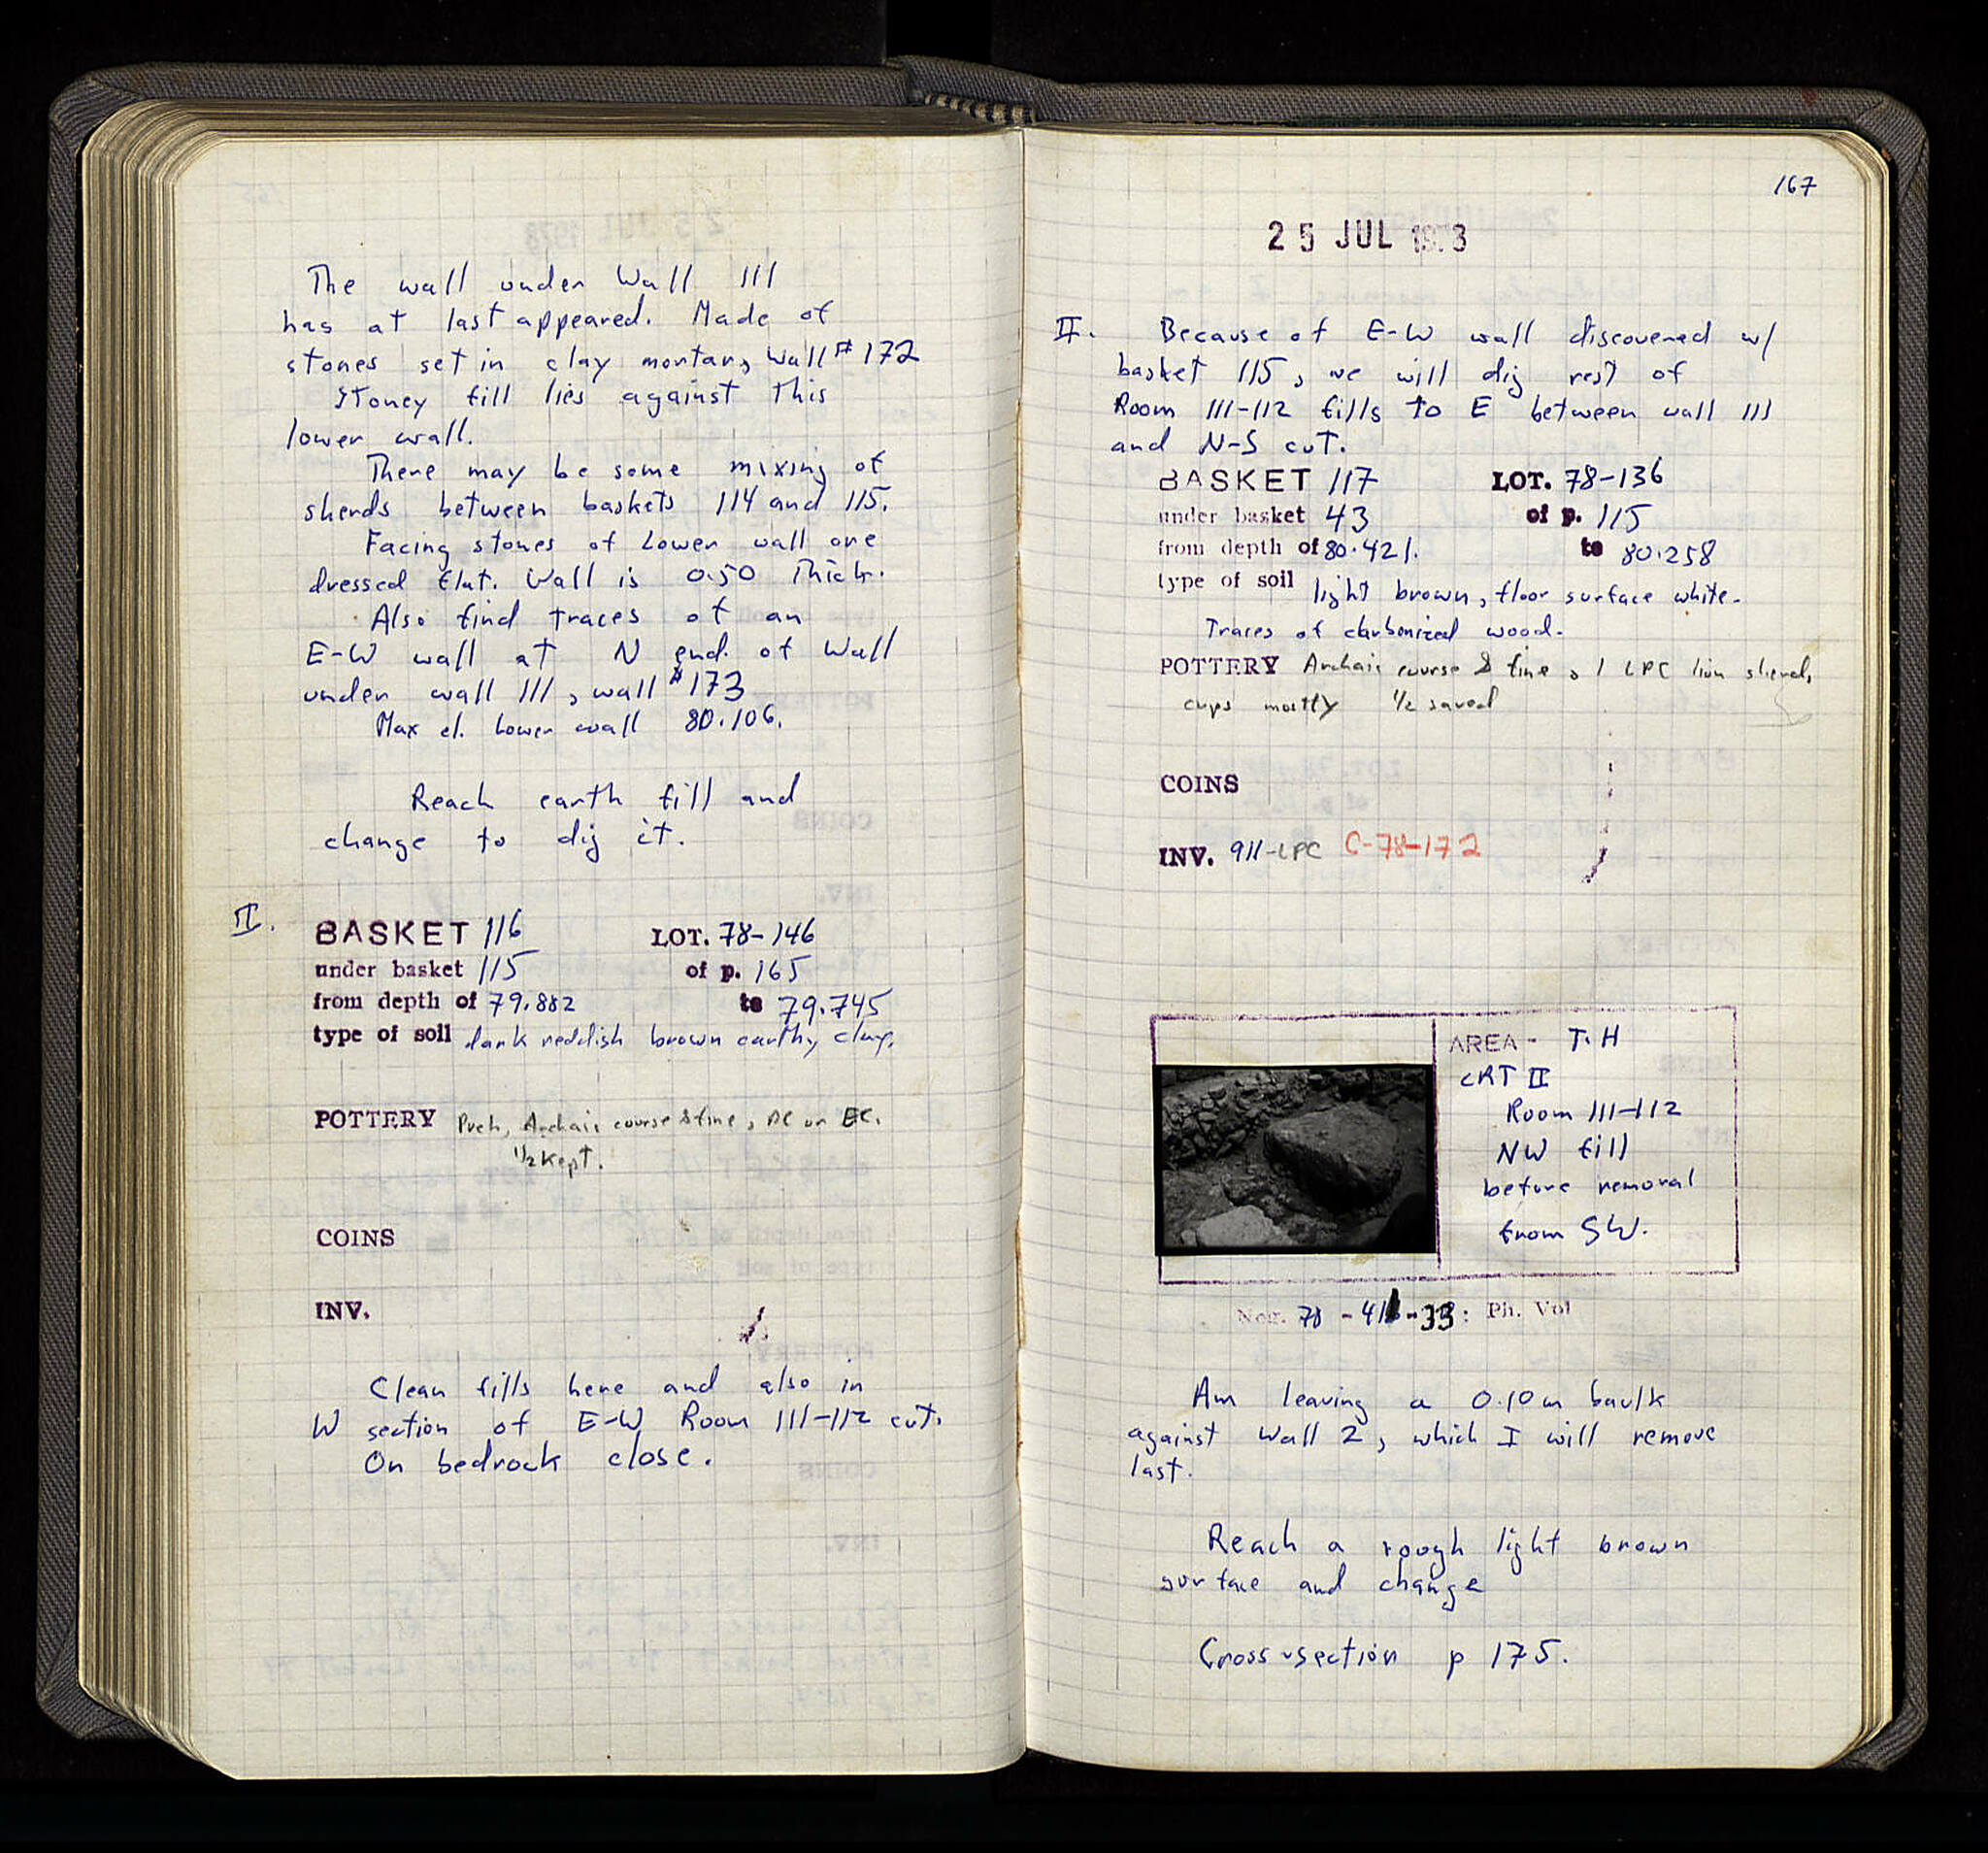 The wall under Wall 111
has at last appeared. Made of
stones set in clay mortar, Wall #172
Stoney fill lies against this
lower wall.
There may be some mixing of
sherds between baskets 114 and 115.
Facing stones of Lower wall are
dressed flat. Wall is 0.50 Thick.
Also find traces of an
E-W wall at N end of Wall
under wall 111, wall #173
Max el. Lower wall 80.106.
Reach earth fill and
change to dig it.
II.
BASKET 116 LOT. 78-146
under basket 115 of p. 165
from depth of 79.882 to 79.745
type of soil dark reddish brown earthy clay.
POTTERY Preh, Archaic course & fine, PC or EC.
1/2 Kept.
COINS
INV.
Clean fills here and also in
W section of E-W Room 111-112 cut.
On bedrock close.
167
25 JUL 1978
II. Because of E-W wall discovered w/
basket 115, we will dig rest of
Room 111-112 fills to E between wall 111
and N-S cut.
BASKET 117 LOT. 78-136
under basket 43 of p. 115
from depth of 80.421. to 80.258
type of soil light brown, floor surface white.
Traces of carbonized wood.
POTTERY Archaic course & fine, 1 LPC lion sherd,
cups mostly 1/2 saved
COINS
INV. 911-LPC C-78-172
AREA - T.H
CRT II
Room 111-112
NW fill
before removal
from SW.
Neg. 78 - 41 - 33: Ph. Vol
Am leaving a 0.10m baulk
against Wall 2, which I will remove
last.
Reach a rough light brown
surface and change
Cross-section p 175.